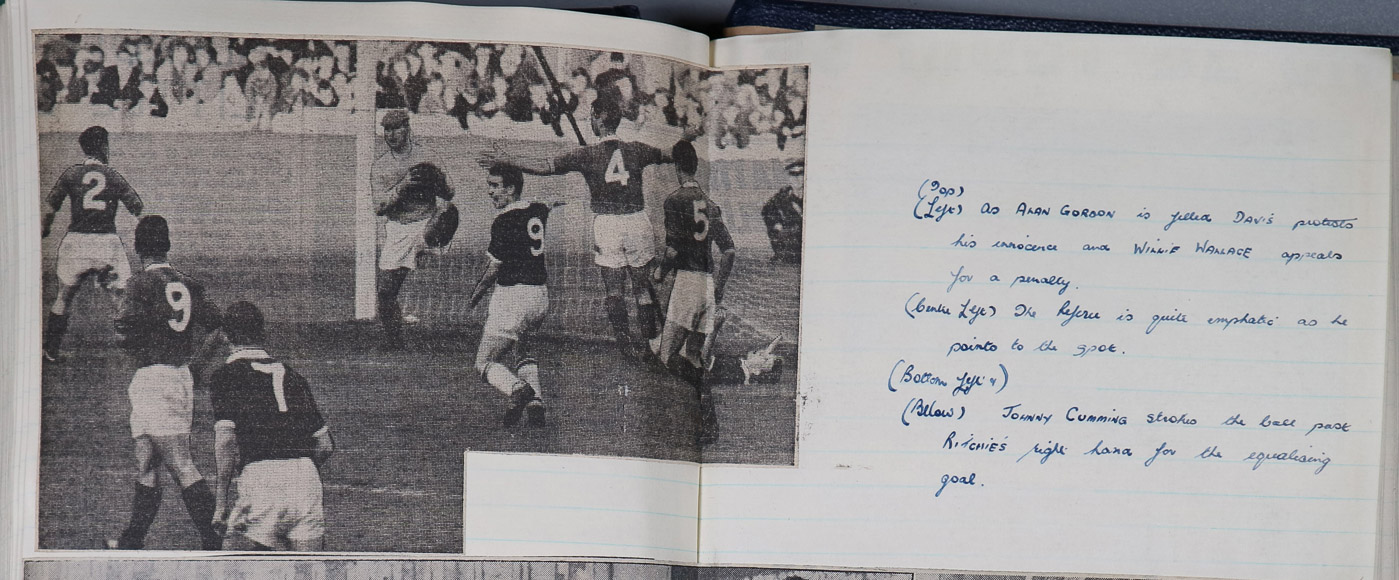 2
9
7
9
4
5
(Top)
(Left) as ALAN GORDON is felled DAVIS protests
his innocence and WILLIE WALLACE appeals
for a penalty.
(Centre Left) The Referee is quite emphatic as he
points to the spot.
(Bottom Left &)
(Below) JOHNNY CUMMING strokes the ball past
RITCHIE'S right hand for the equalising
goal.